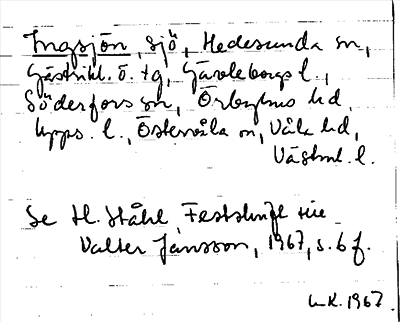 Ingsjön, sjö, Hedesunda sn,
Gästrikl. ö. tg, Gävleborgs l.,
Söderfors sn, Örbyhus hd,
Upps. l., Östervåla sn, Våla hd,
Västml. l.
Se H. Ståhl, Festskrift till
Valter Jansson, 1967, s. 6 f.
1967